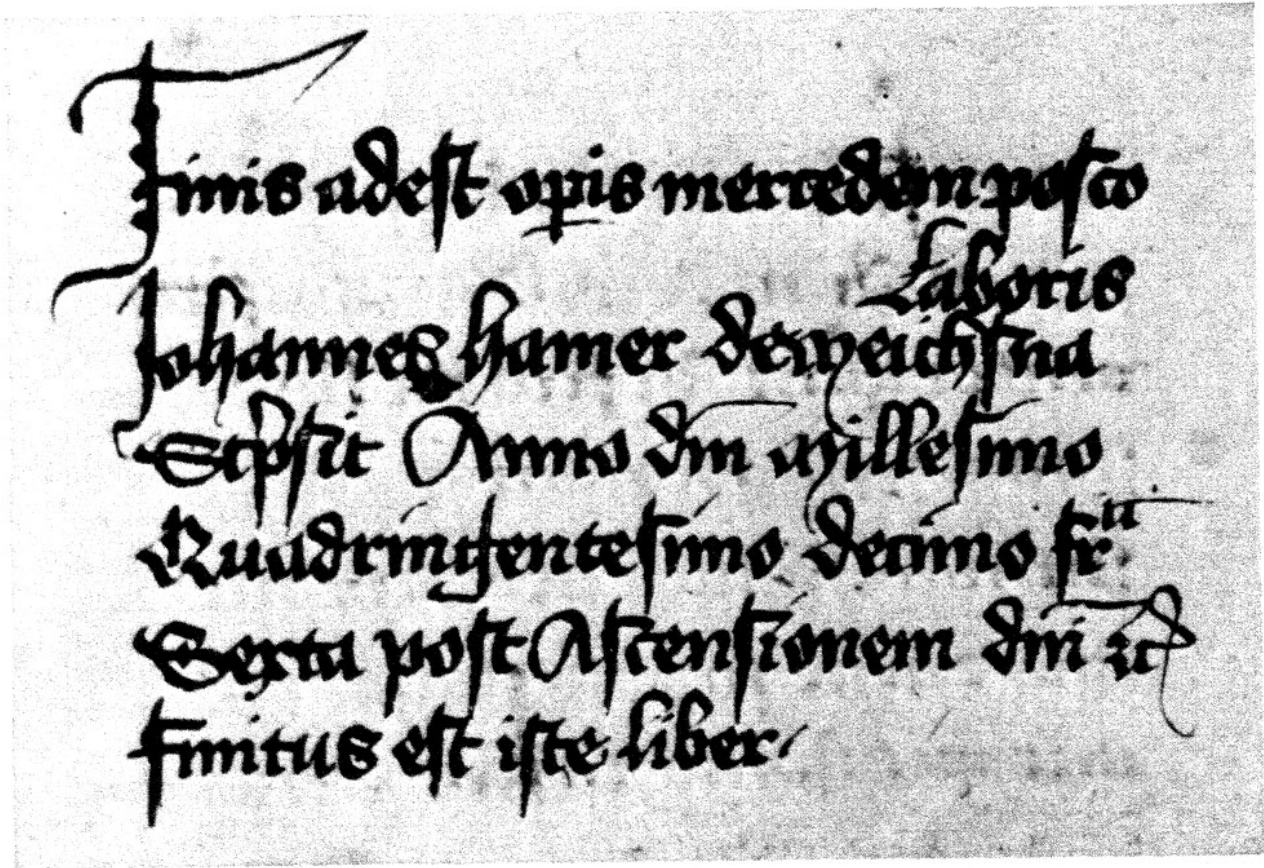 Finis adest opis mercedem posco
Laboris
Johannes hamer de weichsna
Scpsit Anno dni Millesimo
Quadringentesimo decimo fr̄ia
Sexta post Ascensionem dni zc
finitus est iste liber